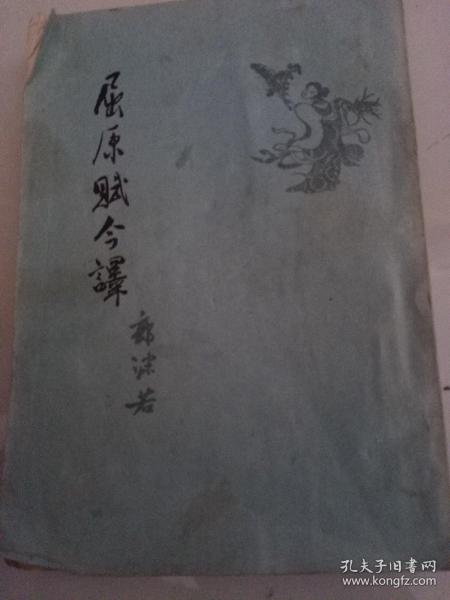 屈原賦今譯
郭沫若
孔夫子旧书网
www.kongfz.com